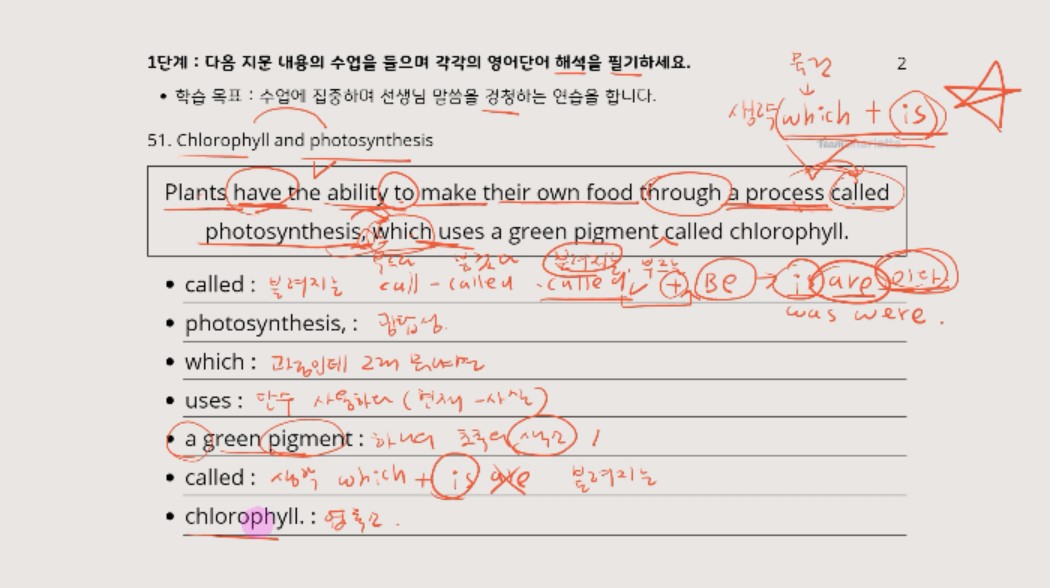 1단계 : 다음 지문 내용의 수업을 들으며 각각의 영어단어 해석을 필기하세요.
2
• 학습 목표 : 수업에 집중하며 선생님 말씀을 경청하는 연습을 합니다.
생략 (which + is)
51. Chlorophyll and photosynthesis
Plants have the ability to make their own food through a process called
photosynthesis, which uses a green pigment called chlorophyll.
불려지는
• called : 불려지는 call - called - called + Be → is are 이다
was were.
• photosynthesis, : 광합성.
• which :
• uses : 단수 사용하다 (현재 - 사실)
• a green pigment : 하나의 초록의 색소
• called : 생략 which + is are 불려지는
• chlorophyll. : 엽록소.